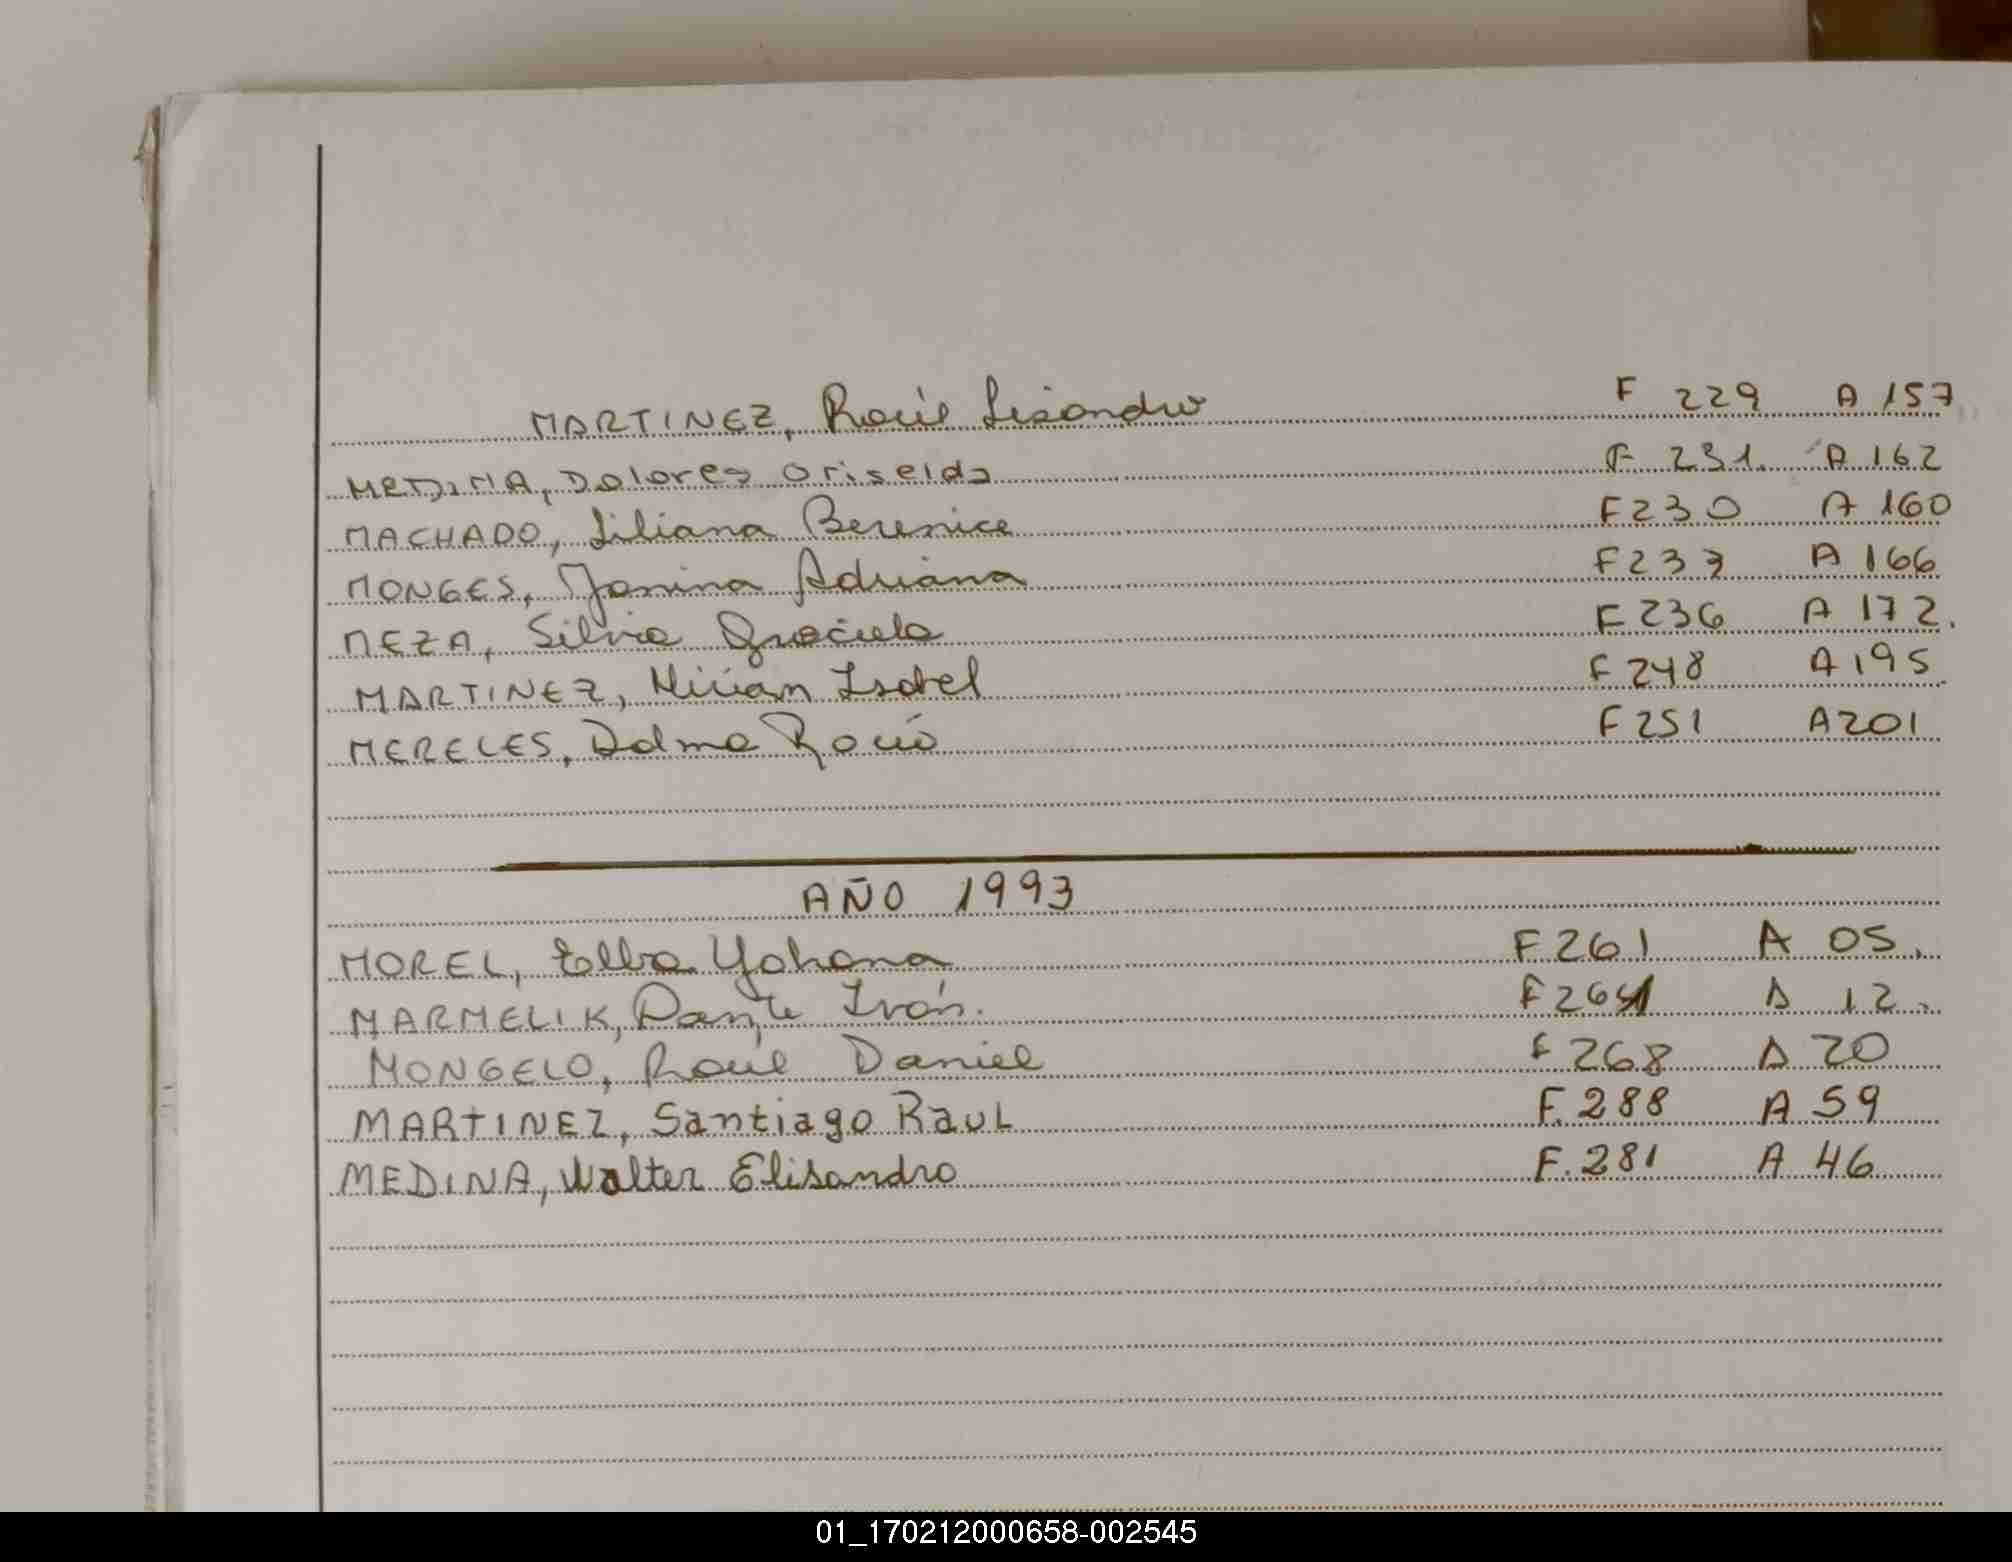 MARTINEZ, Raúl Lisandro F 229 A 157
MEDINA, Dolores Griselda F 231. A 162
MACHADO, Liliana Berenice F 230 A 160
MONGES, Yanina Adriana F 233 A 166
MEZA, Silvia Graciela F 236 A 172.
MARTINEZ, Miriam Isabel F 248 A 195
MERELES, Dalma Rocío F 251 A 201
AÑO 1993
MOREL, Elba Yohana F 261 A 05.
MARMELIK, Dante Iván. A 12.
MONGELO, Raúl Daniel F 268 A 20
MARTINEZ, Santiago Raul F. 288 A 59
MEDINA, Walter Elisandro F. 281 A 46
01_170212000658-002545